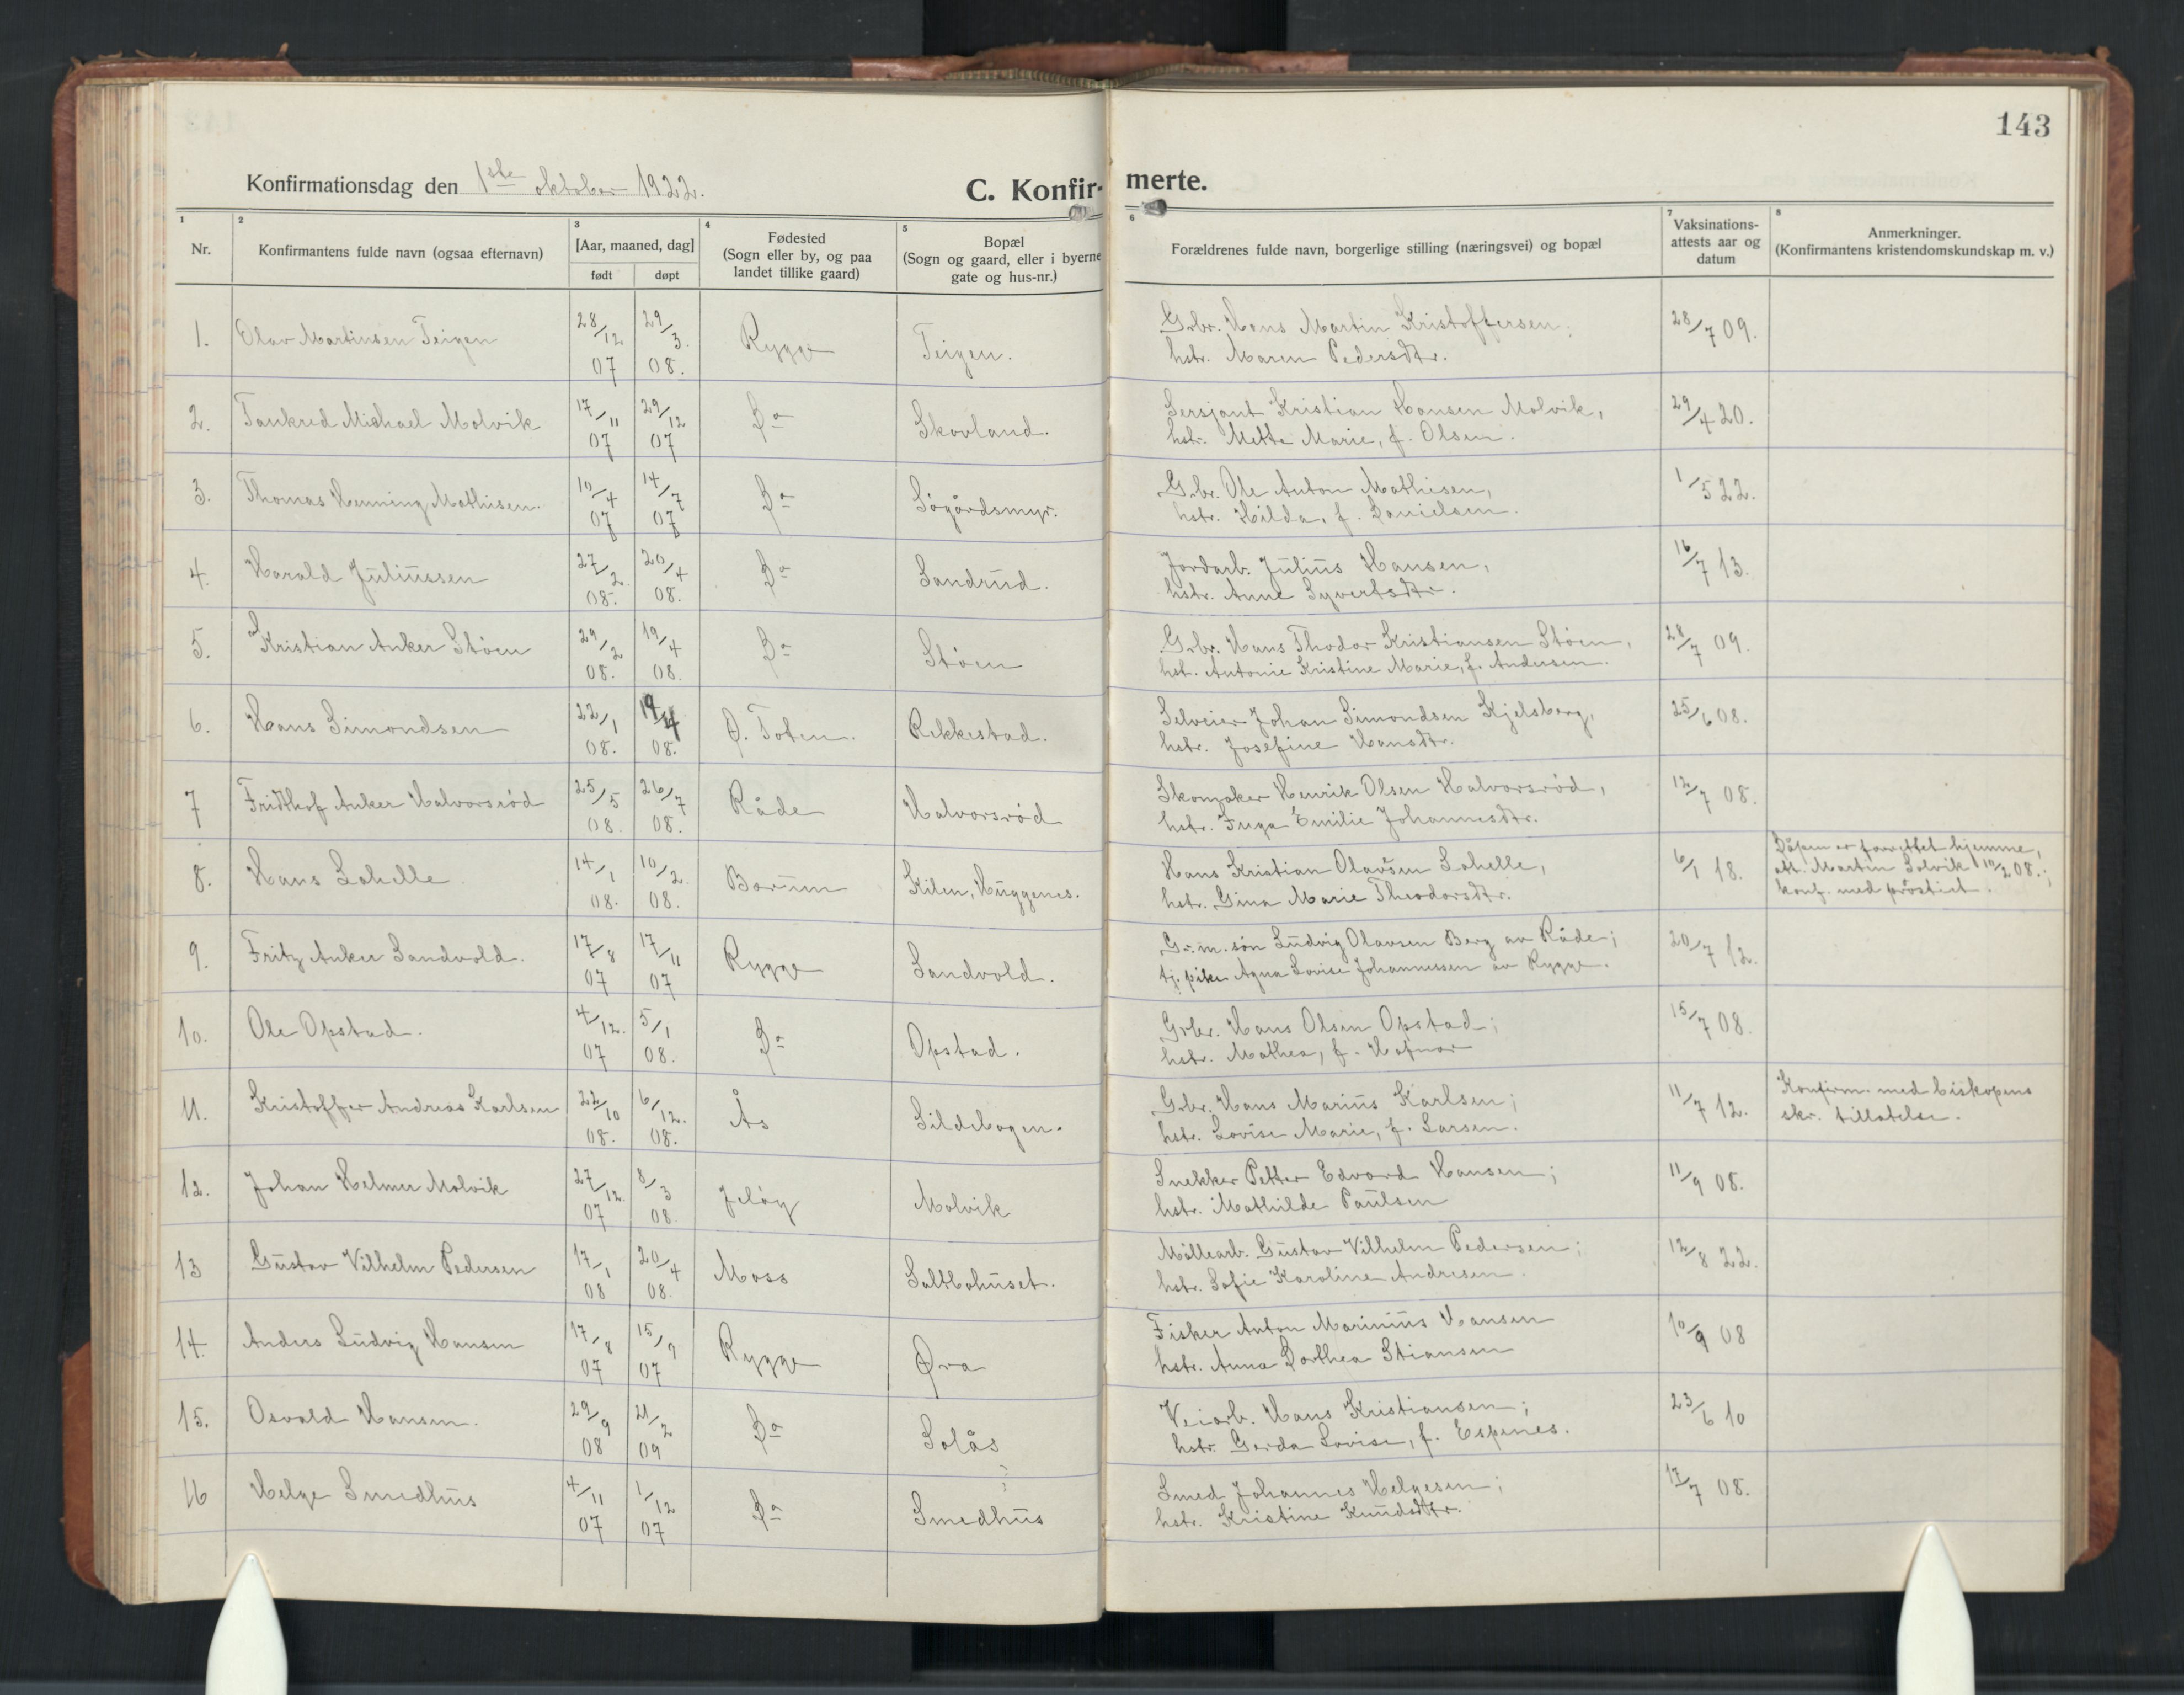 143
Konfirmationsdag den 1ste oktober 1922.
C. Konfir- merte.
1 2 3 4 5 6 7 8
Nr. Konfirmantens fulde navn (ogsaa efternavn) [Aar, maaned, dag] født døpt Fødested (Sogn eller by, og paa landet tillike gaard) Bopæl (Sogn og gaard, eller i byerne gate og hus-nr.) Forældrenes fulde navn, borgerlige stilling (næringsvei) og bopæl Vaksinations-attests aar og datum Anmerkninger. (Konfirmantens kristendomskundskap m. v.)
1. Olav Martinsen Teigen 28/12 07 29/3. 08. Rygge Teigen. Grbr. Hans Martin Kristoffersen; 28/7 09.
hstr. Maren Pedersdtr.
2. Tankred Michael Molvik 17/11 07 29/12 07 Do Skovland. Sersjant Kristian Hansen Molvik, 29/4 20.
hstr. Mette Marie, f. Olsen.
3. Thomas Henning Mathisen. 10/4 07 14/7 07 Do Søgårdsmyr. G.br. Ole Anton Mathisen, 1/5 22.
hstr. Hilda, f. Danielsen.
4. Harald Juliussen 27/2. 08. 20/4 08. Do Sandrud. Jordarb. Julius Hansen, 16/7 13.
hstr. Anne Syvertsdtr.
5. Kristian Anker Støen 29/2 08. 19/4 08. Do Støen Grbr. Hans Thodor Kristiansen Støen, 28/7 09.
hst. Antonie Kristine Marie, f. Andersen.
6. Hans Simondsen 22/1 08. 19/4 08. Ø. Toten. Rekkestad. Selveier Johan Simondsen Kjelsberg, 25/6 08.
hstr. Josefine Hansdtr.
7 Fridthof Anker Halvorsrød 25/5 08. 26/7 08. Råde Halvorsrød Skomaker Henrik Olsen Halvorsrød, 12/7 08.
hstr. Inga Emilie Johannesdtr.
8. Hans Lahelle. 14/1 08. 10/2. 08. Bærum Kilen, Huggenes. Hans Kristian Olavsen Lahelle, 6/1 18. Dåpen er forrettet hjemme,
hstr. Gina Marie Theodorsdtr. att. Martin Solvik 10/2 08.;
konf. med prostiet.
9. Fritz Anker Sandvold. 17/8 07 17/11 07 Rygge Sandvold. G.m. søn Ludvig Olavsen Berg av Råde; 20/7 12.
tj. pike Agna Lovise Johannessen av Rygge.
10. Ole Opstad. 4/12. 07 5/1 08. Do Opstad. Grbr. Hans Olsen Opstad; 15/7 08.
hstr. Mathea, f. Hafnor
11. Kristoffer Andreas Karlsen 22/10 08. 6/12. 08. Ås Sildebogen. Grbr. Hans Marius Karlsen; 11/7 12. Konfirm. med biskopens
hstr. Lovise Marie, f. Larsen. skr. tillatelse.
12. Johan Helmer Molvik 27/12. 07 8/3 08 Jeløy Molvik Snekker Petter Edvard Hansen; 11/9 08.
hstr. Mathilde Paulsen
13 Gustav Vilhelm Pedersen 17/1 08 20/4 08. Moss Saltbohuset. Møllearb. Gustav Vilhelm Pedersen; 12/8 22.
hstr. Sofie Karoline Andresen.
14. Anders Ludvig Hansen 17/8 07 15/9 07 Rygge Øra Fisker Anton Marinius Hansen 10/9 08
hstr. Anna Dorthea Stiansen
15. Osvald Hansen. 29/9 08 21/2 09 Do Solås Veiarb. Hans Kristiansen; 23/6 10
hstr. Gerda Lovise, f. Espenes.
16 Helge Smedhus 4/11 07 1/12 07 Do Smedhus Smed Johannes Helgesen; 17/7 08.
hstr. Kristine Knudsdtr.